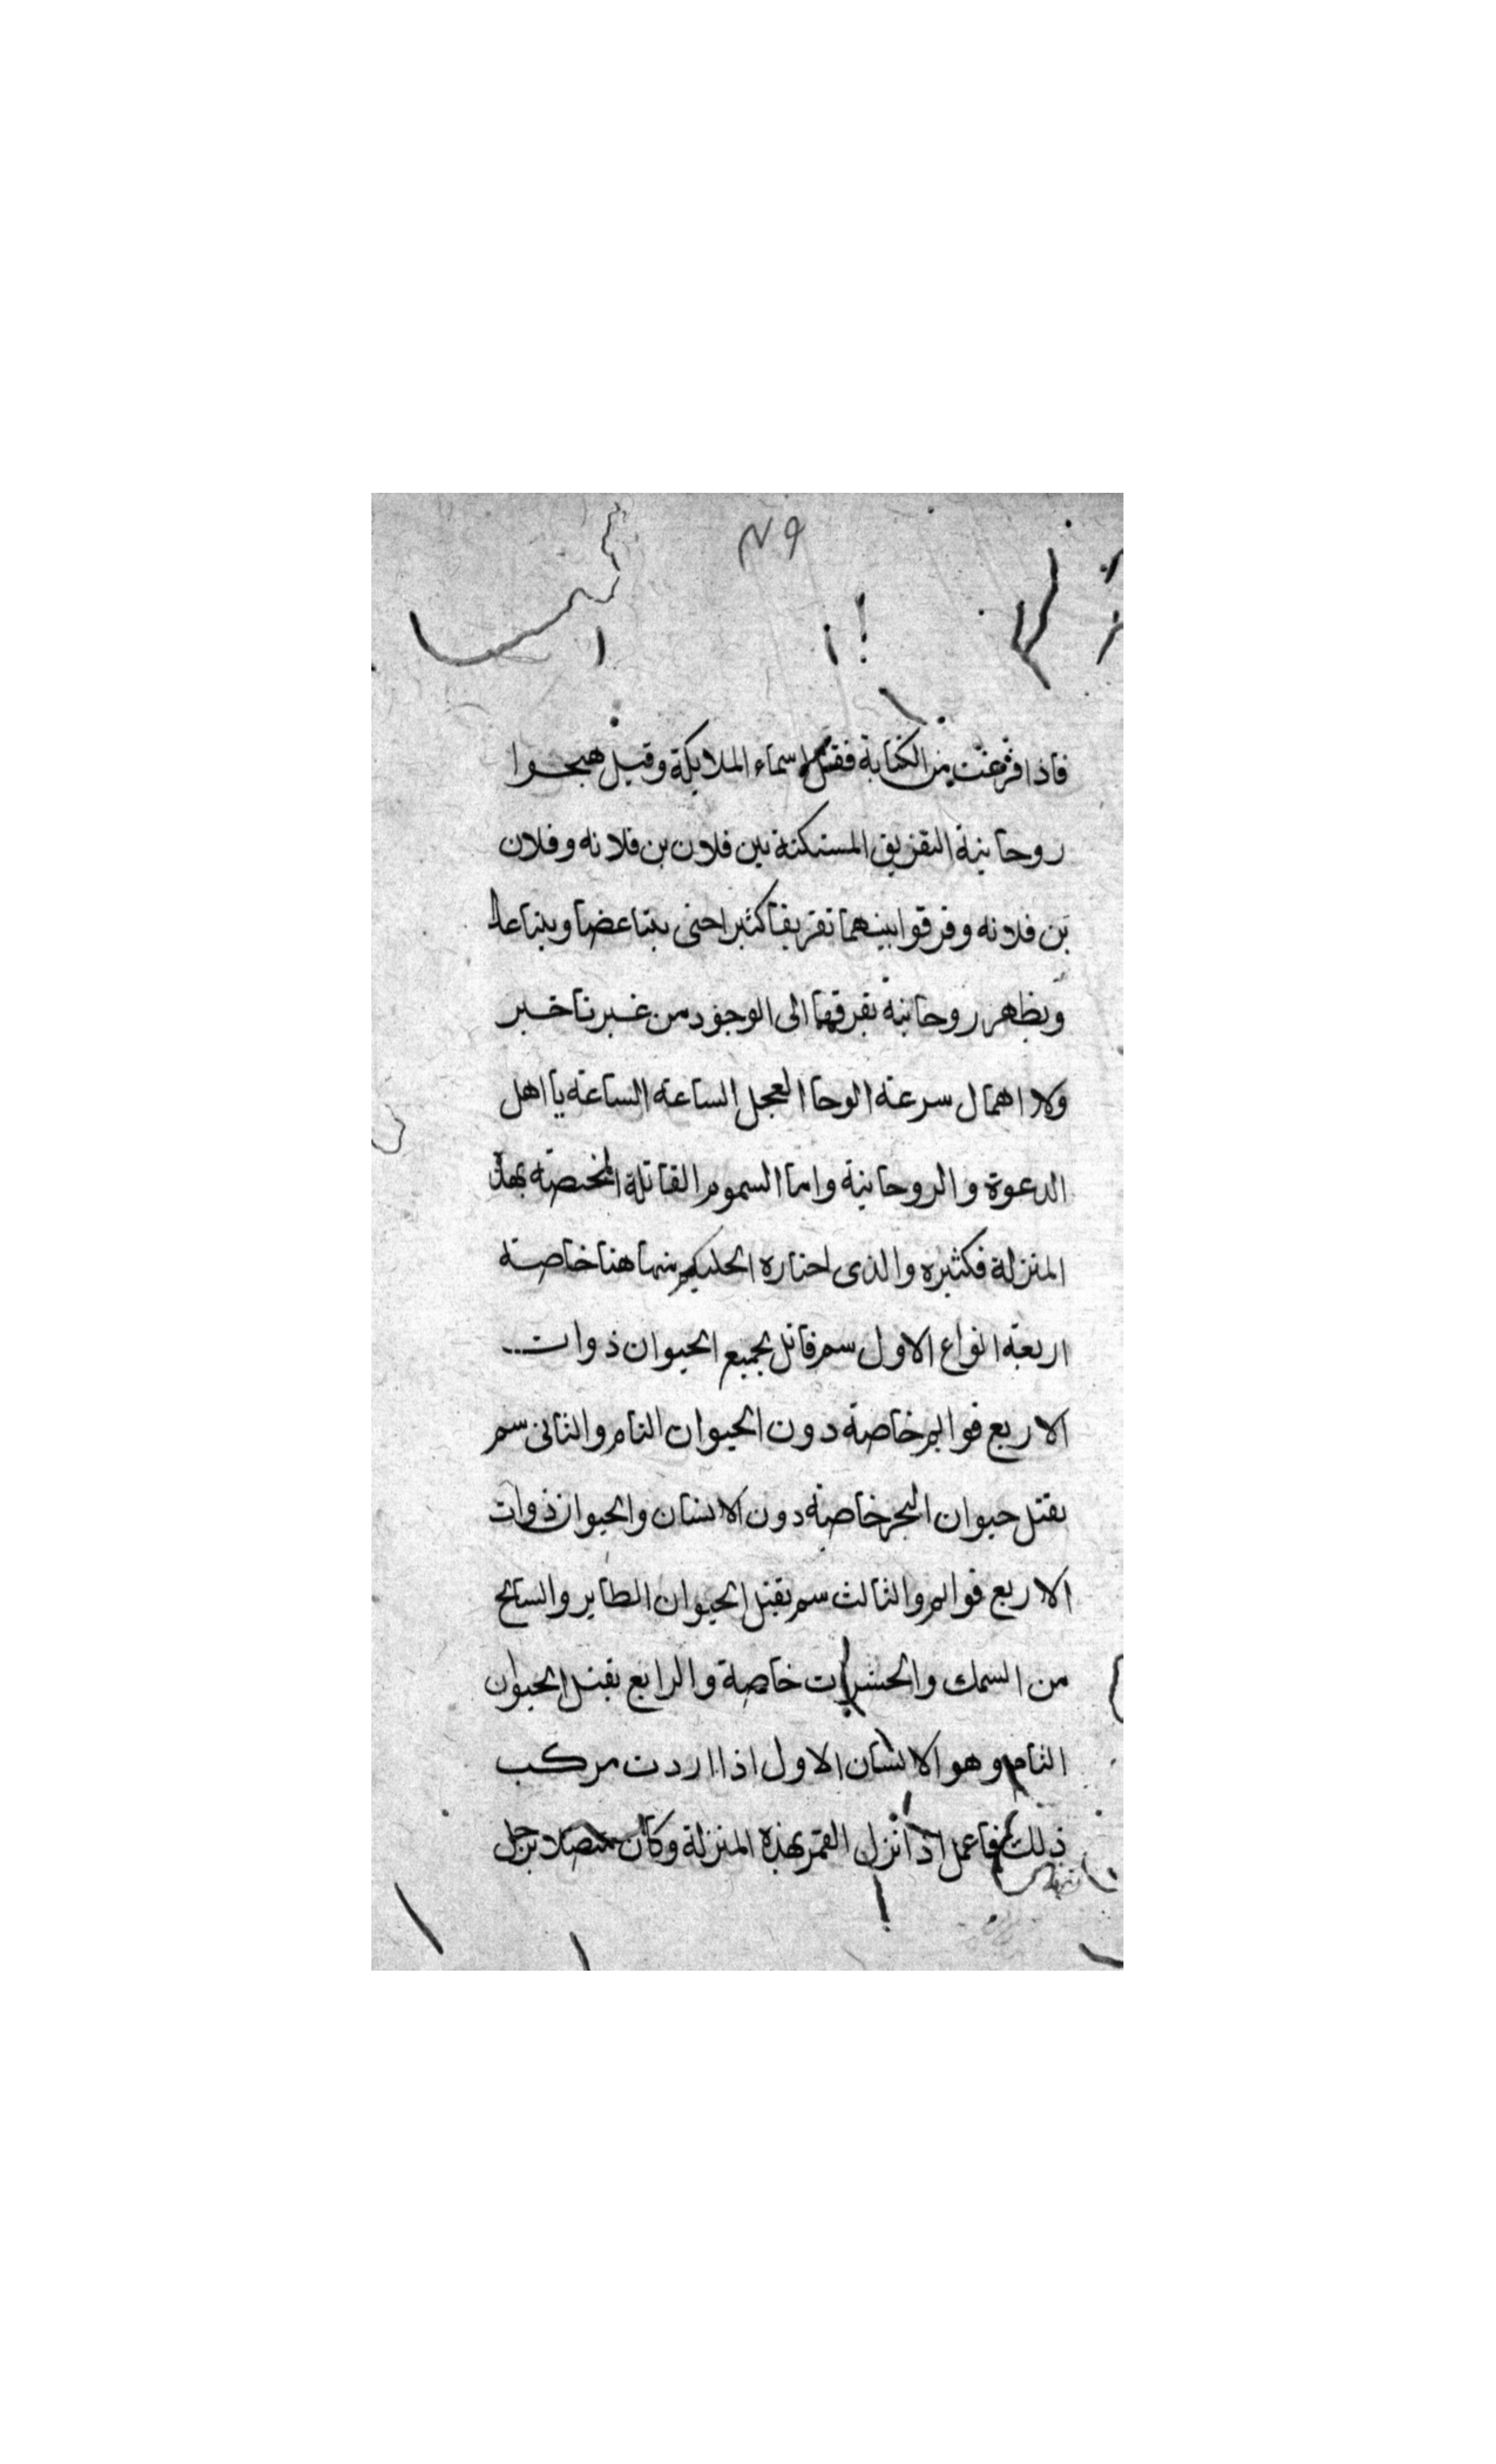 ٤٩
فاذا فرغت من الكتابة فقل اسماء الملايكة وقيل هيجوا
روحانية التفريق المستكنة بين فلان بن فلانه وفلان
بن فلانه وفرقوا بينهما تفريقا كثيرا حتى يتباغضا ويتباعدا
ويظهر روحانية تفرقهما الى الوجود من غير تاخير
ولا اهمال سرعة الوحا العجل الساعة الساعة يا اهل
الدعوة والروحانية واما السموم القاتلة المختصه بهذه
المنزلة فكثيره والذى اختاره الحكيم منها هنا خاصة
اربعة انواع الاول سم قاتل لجميع الحيوان ذوات
الاربع قوايم خاصة دون الحيوان التام والثانى سم
يقتل حيوان البحر خاصة دون الانسان والحيوان ذوات
الاربع قوايم والثالث سم يقتل الحيوان الطاير والسابح
من السمك والحشرات خاصة والرابع يقتل الحيوان
التام وهو الانسان الاول اذا اردت مركب
ذلك فاعمل اذا نزل القمر بهذه المنزلة وكان متصلا بزحل